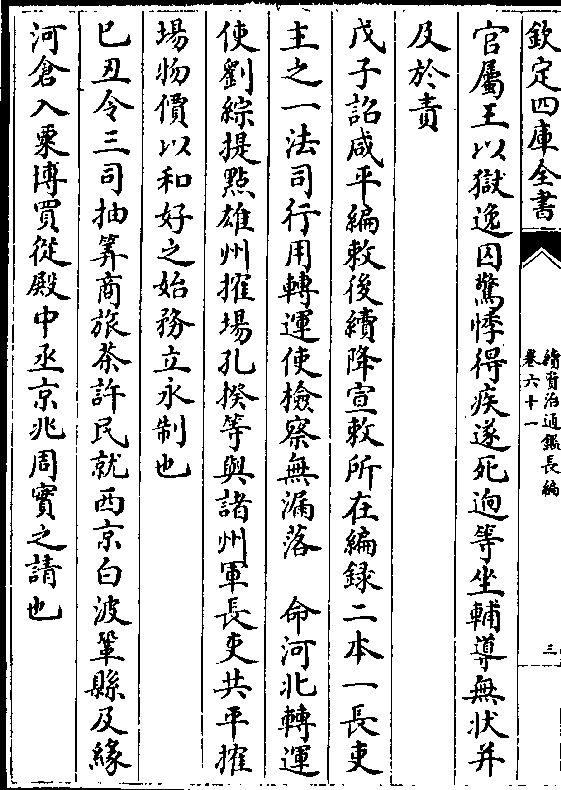 欽定四庫全書
續資治通鑑長編
卷六十一
三
官屬王以獄逸囚驚悸得疾遂死逈等坐輔導無状并
及於責
戊子詔咸平編敕後續降宣敕所在編録二本一長吏
主之一法司行用轉運使檢察無漏落　命河北轉運
使劉綜提㸃雄州𣙜場孔揆等與諸州軍長吏共平𣙜
場物價以和好之始務立永制也
巳丑令三司抽筭商旅茶許民就西京白波鞏縣及緣
河倉入粟博買從殿中丞京兆周實之請也